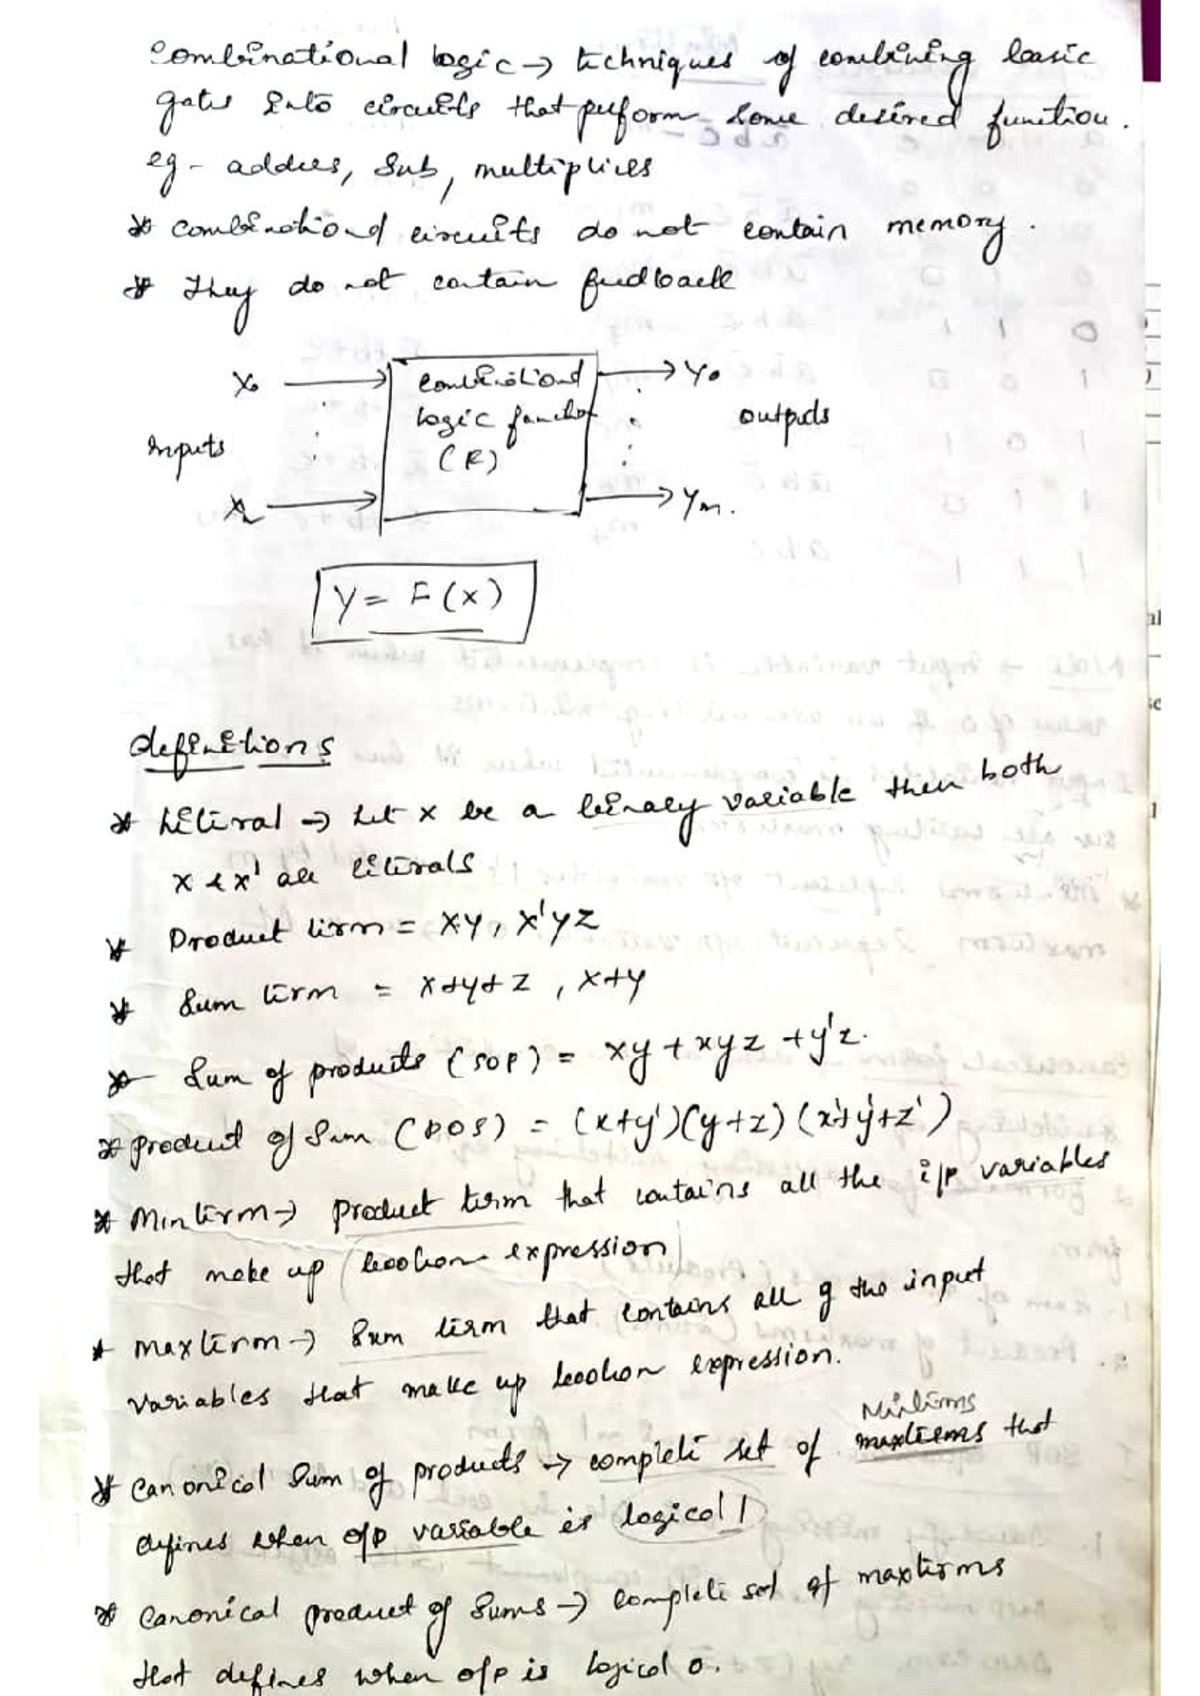 Combinational logic → techniques of combining basic
gates into circuits that perform some desired function.
eg - adders, Sub, multipliers
* Combinational circuits do not contain memory.
* They do not contain feedback
X₀ Combinational Y₀
logic function outputs
inputs (F)
Xₙ Yₘ.
Y = F(x)
definitions
* Literal → Let x be a binary variable then both
x & x' are literals
* Product term = xy, x'yz
* Sum term = x+y+z, x+y
* Sum of products (SOP) = xy + xyz + y'z.
* product of Sum (POS) = (x+y')(y+z)(x'+y'+z')
* Minterm → product term that contains all the i/p variables
that make up boolean expression
* maxterm → Sum term that contains all of the input
variables that make up boolean expression.
Minterms
* Canonical Sum of products → complete set of maxterms that
defines when o/p variable is logical 1
* Canonical product of Sums → complete set of maxterms
that defines when o/p is logical 0.